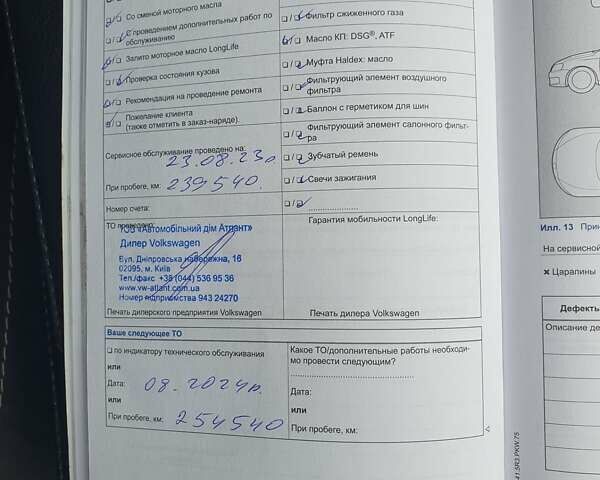 Со сменой моторного масла
С проведением дополнительных работ по
обслуживанию
Залито моторное масло LongLife
Проверка состояния кузова
Рекомендация на проведение ремонта
Пожелание клиента
(также отметить в заказ-наряде).
Сервисное обслуживание проведено на:
23.08.23р.
При пробеге, км: 239540.
Номер счета:
ТО проведено:
ТОВ «Автомобільний дім Атлант»
Дилер Volkswagen
Вул. Дніпровська набережна, 16
02095, м. Київ
Тел./факс +38 (044) 536 95 36
www.vw-atlant.com.ua
Номер підприємства 943 24270
Печать дилерского предприятия Volkswagen
Фильтр сжиженного газа
Масло КП: DSG®, ATF
Муфта Haldex: масло
Фильтрующий элемент воздушного
фильтра
Баллон с герметиком для шин
Фильтрующий элемент салонного фильт-
ра
Зубчатый ремень
Свечи зажигания
Гарантия мобильности LongLife:
Печать дилера Volkswagen
Ваше следующее ТО
по индикатору технического обслуживания
или
Дата: 08.2024р.
или
При пробеге, км: 254540
Какое ТО/дополнительные работы необходи-
мо провести следующим?
Дата:
или
При пробеге, км:
41.5R3.PKW.75
Илл. 13 При
На сервисной
× Царапины
Дефекты
Описание де